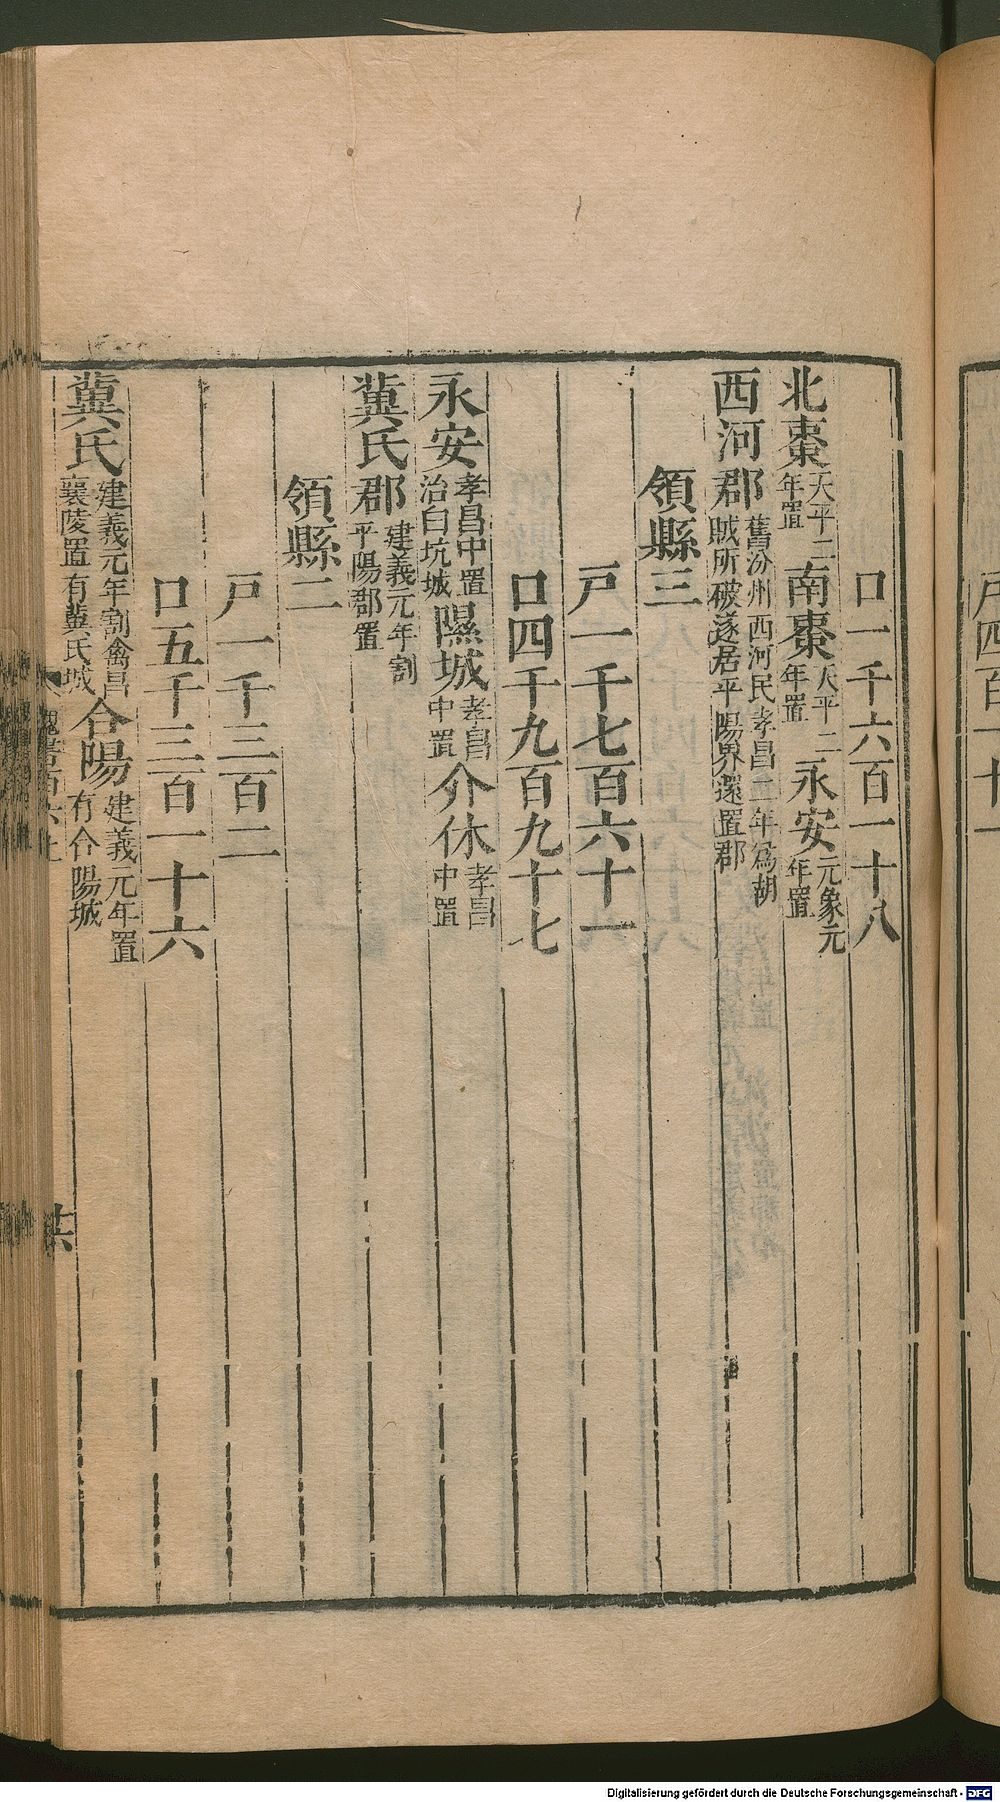 口一千六百一十八
北棗天平二年置南棗天平二年置永安元象元年置
西河郡舊汾州西河民孝昌二年爲胡賊所破遂居平陽界還置郡
領縣三
戸一千七百六十一
口四千九百九十七
永安孝昌中置治白坑城隰城孝昌中置介休孝昌中置
兾氏郡建義元年割平陽郡置
領縣二
戸一千三百二
口五千三百一十六
兾氏建義元年割禽昌襄陵置有兾氏城合陽建義元年置有合陽城
魏書百六上
Digitalisierung gefördert durch die Deutsche Forschungsgemeinschaft - DFG